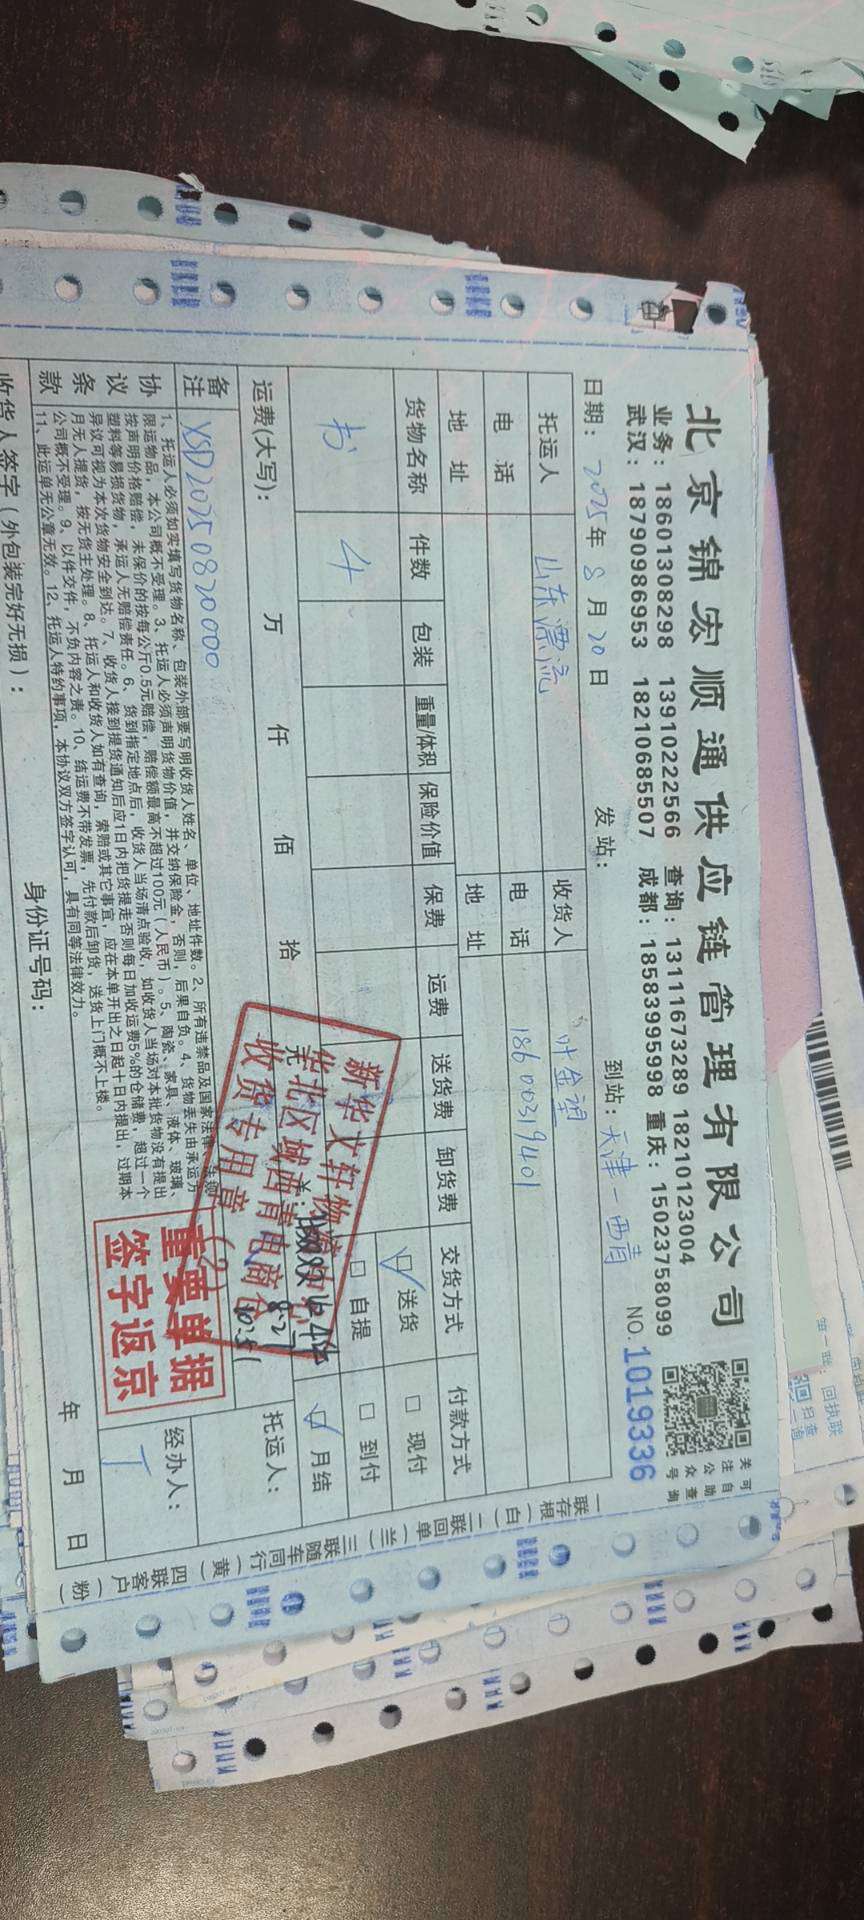 北京锦宏顺通供应链管理有限公司
业务：18601308298 13910222566 查询：13111673289 18210123004
武汉：18790986953 18210685507 成都：18583995998 重庆：15023758099
关注公众号
可自助查询
日期：2025年8月20日 发站： 到站：天津-西青 NO.1019336
托运人 山东漂流 收货人 叶金望
电话 电话 18600319401
地址 地址
货物名称 件数 包装 重量/体积 保险价值 保费 运费 送货费 卸货费 交货方式 付款方式
书 4 送货 现付
自提 到付
月结
运费(大写)： 万 仟 佰 拾 元 托运人：
备注 XSD20250820000
协议条款
1、托运人必须如实填写货物名称、包装外部要写明收货人姓名、单位、地址件数。2、所有违禁品及国家法律、法规
限运物品，本公司概不受理。3、托运人必须声明货物价值，并交纳保险金，否则，后果自负。4、货物丢失由承运方
按声明价格赔偿，未保价的按每公斤0.5元赔偿，赔偿额最高不超过100元（人民币）。5、陶瓷、家具、液体、玻璃、
塑料等易损货物，承运人无赔偿责任。6、货到指定地点后，收货人当场清点验收，如收货人当场对本批货物没有提出
异议可视为本次货物安全到达。7、收货人接到提货通知后应1日内把货提走否则每日加收运费5%的仓储费，超过一个
月无人提货，按无货主处理。8、托运人和收货人如有查询，索赔或其它事宜，应在本单开出之日起十日内提出，过期本
公司概不受理。9、以件交件，不负内容之责。10、结运费不带发票，先付款后卸货，送货上门概不上楼。
11、此运单无公章无效。12、托运人特约事项，本协议双方签字认可，具有同等法律效力。
经办人：
丁
收货人签字（外包装完好无损）： 身份证号码： 年 月 日
新华文轩物流
华北区域西青电商仓
收货专用章
(2)
8.27
10:51
重要单据
签字返京
一存根(白) 二回单(兰) 三随车同行(黄) 四联客户(粉)
第一联：回执联
扫查